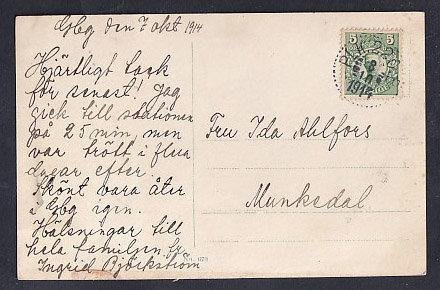 Gbg den 7 okt 1914
Hjärtligt tack
för senast! Jag
gick till stationen
på 25 min, men
var trött i flera
dagar efter.
Skönt vara åter
i Gbg igen.
Hälsningar till
hela familjen fr.
Ingrid Björkström
5 5
8
1914
Fru Ida Ahlfors
Munkedal